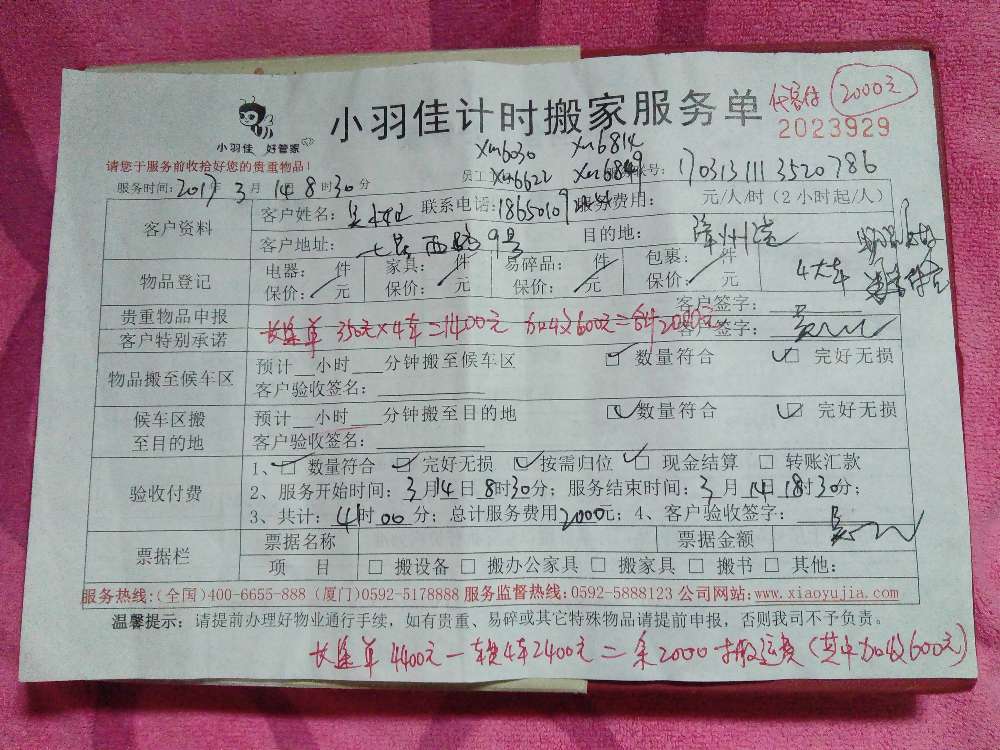 小羽佳计时搬家服务单
代客付 2000元
2023929
小羽佳 好管家
请您于服务前收拾好您的贵重物品!
xm6030 xm6814
员工 xm6622 xm6849 账号: 70313111 3520786
服务时间: 2017年 3月 14日 8时30分
客户资料
客户姓名: 联系电话: 18650109 服务费用: 元/人/时 (2 小时起/人)
客户地址: 七星西路9号 目的地: 漳州港
物品登记
电器: 件 家具: 件 易碎品: 件 包裹: 件
保价: 元 保价: 元 保价: 元 保价: 元
4大车
贵重物品申报 客户签字:
客户特别承诺 客户签字:
长途单 350元×4车=1400元 加收600元=合计2000元
物品搬至候车区
预计 小时 分钟搬至候车区 数量符合 完好无损
客户验收签名:
候车区搬至目的地
预计 小时 分钟搬至目的地 数量符合 完好无损
客户验收签名:
验收付费
1、 数量符合 完好无损 按需归位 现金结算 转账汇款
2、服务开始时间: 3月14日 8时30分; 服务结束时间: 3月 14日 18时30分;
3、共计: 时 00 分; 总计服务费用2000元; 4、客户验收签字:
票据栏
票据名称 票据金额
项 目 搬设备 搬办公家具 搬家具 搬书 其他:
服务热线:(全国)400-6655-888 (厦门)0592-5178888 服务监督热线:0592-5888123 公司网站:www.xiaoyujia.com
温馨提示: 请提前办理好物业通行手续, 如有贵重、易碎或其它特殊物品请提前申报, 否则我司不予负责。
长途单 4400元-车费4车2400元=余2000 搬运费 (其中加收600元)